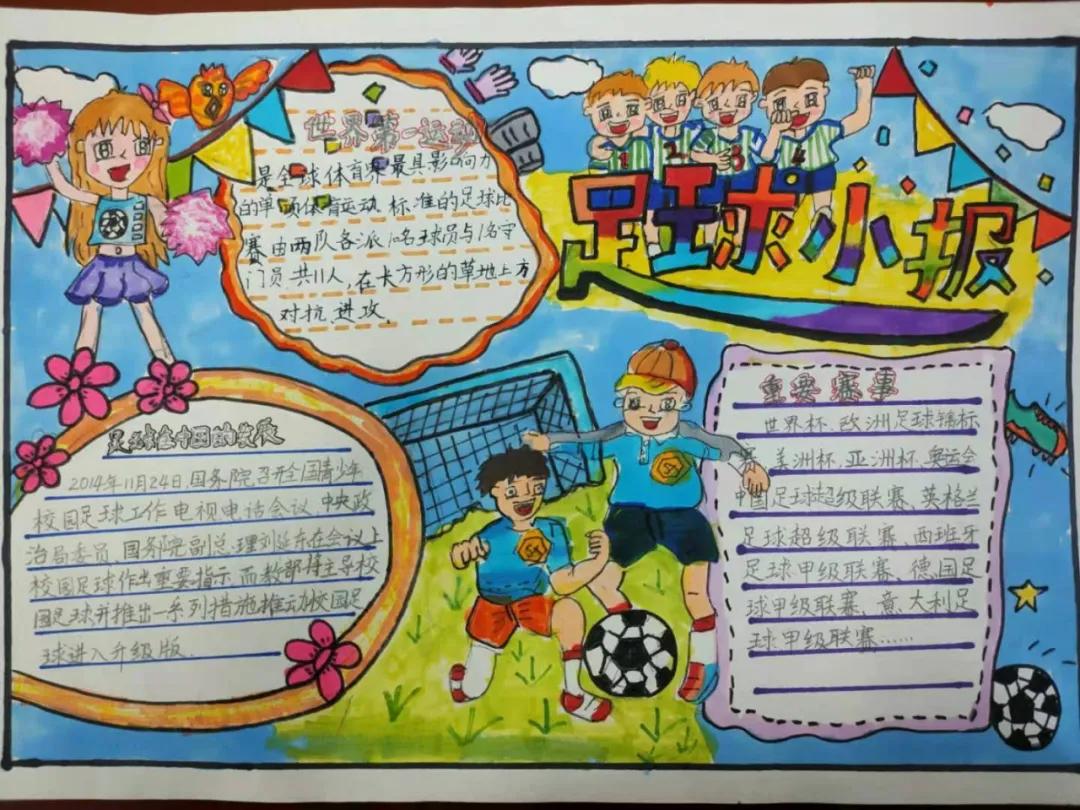 足球小报
1 2 3 4
世界第一运动
是全球体育界最具影响力
的单项体育运动,标准的足球比
赛由两队各派10名球员与1名守
门员,共11人,在长方形的草地上方
对抗、进攻.
足球在中国的发展
2014年11月24日,国务院召开全国青少年
校园足球工作电视电话会议,中央政
治局委员、国务院副总理刘延东在会议上
校园足球作出重要指示,而教部将主导校
园足球并推出一系列措施,推动校园足
球进入升级版.
重要赛事
世界杯、欧洲足球锦标
赛、美洲杯、亚洲杯、奥运会
中国足球超级联赛、英格兰
足球超级联赛、西班牙
足球甲级联赛、德国足
球甲级联赛、意大利足
球甲级联赛……